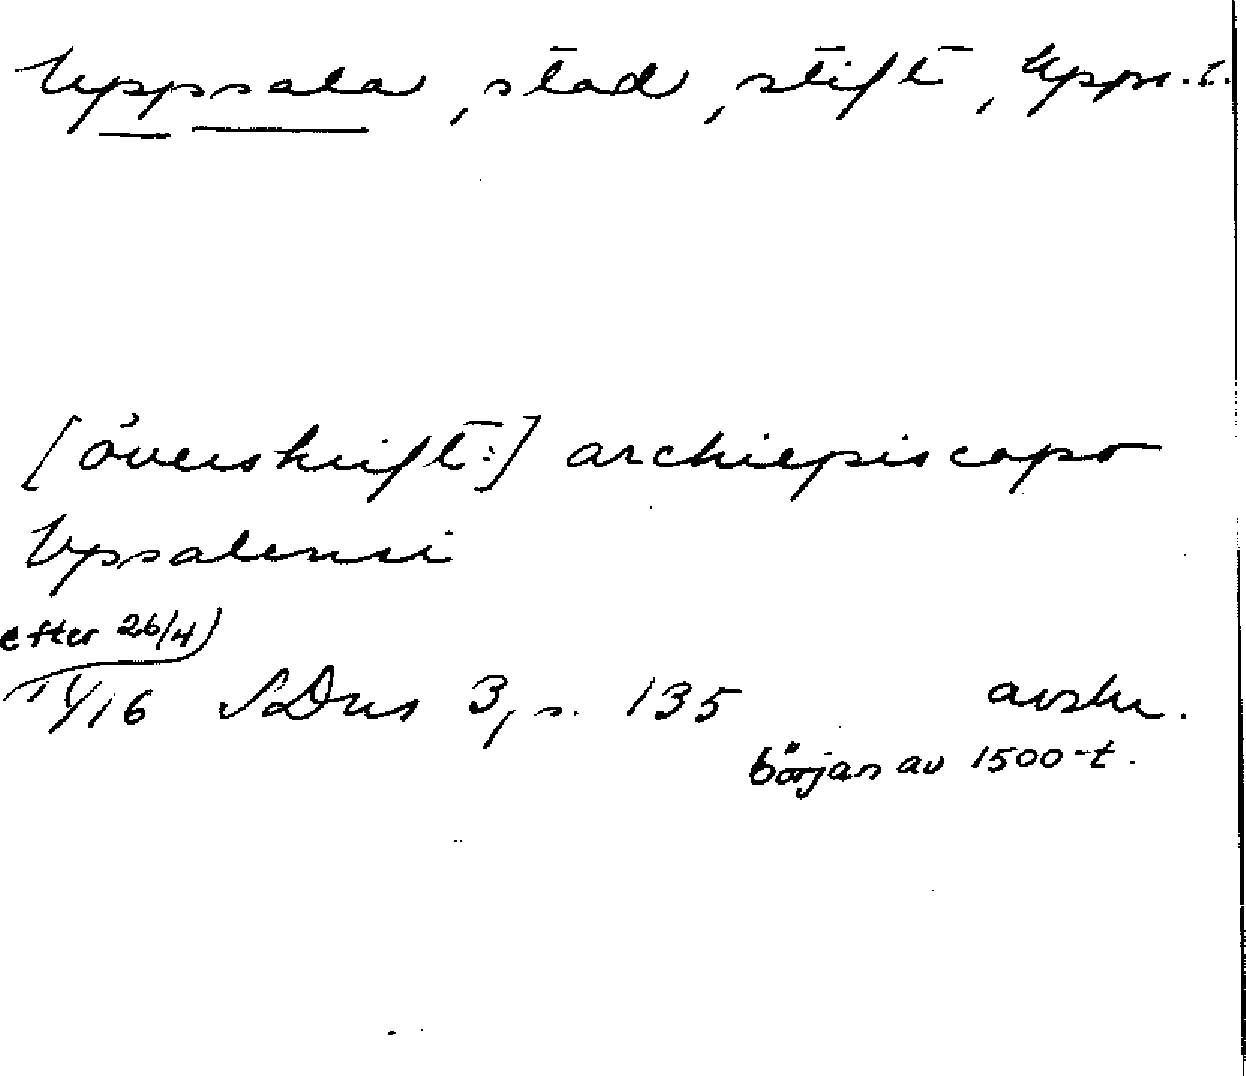 Uppsala, stad, stift, Upps. l.
[överskrift:] archiepiscopo
Vpsalensi
efter 26/4)
14/16 SDns 3, s. 135 avskr.
början av 1500-t.